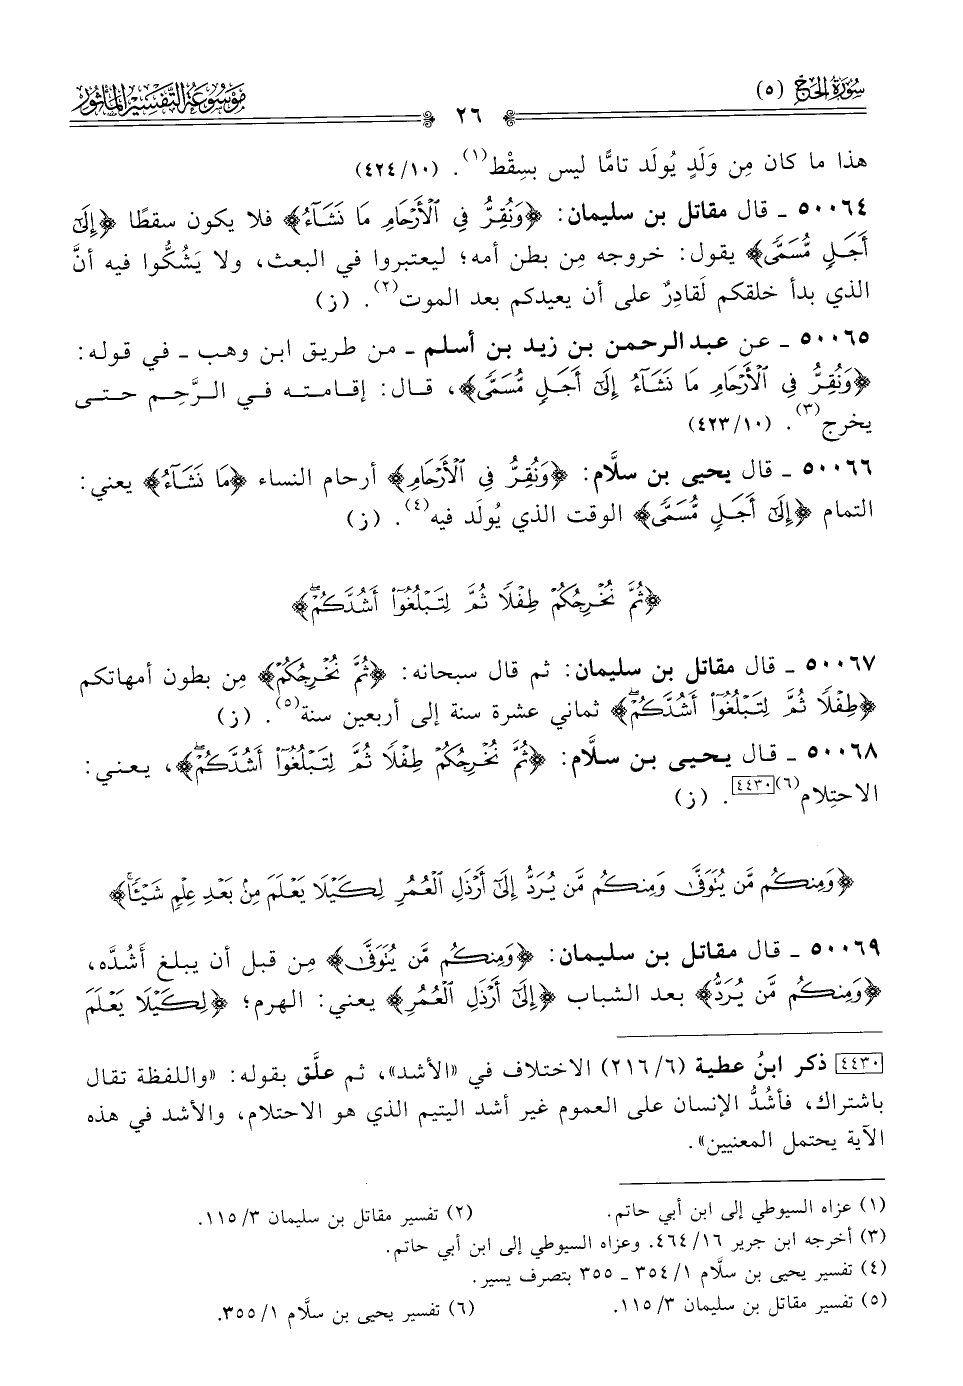 سُورَةُ الحَجّ (٥)
موسوعة التفسير المأثور
٢٦
هذا ما كان مِن وَلَدٍ يُولَد تامًّا ليس بسِقْط(١). (٤٢٤/١٠)
٥٠٠٦٤ ـ قال مقاتل بن سليمان: ﴿وَنُقِرُّ فِي الْأَرْحَامِ مَا نَشَآءُ﴾ فلا يكون سقطًا ﴿إِلَىٰٓ
أَجَلٍ مُّسَمًّى﴾ يقول: خروجه مِن بطن أمه؛ ليعتبروا في البعث، ولا يَشُكُّوا فيه أنَّ
الذي بدأ خلقكم لَقادِرٌ على أن يعيدكم بعد الموت(٢). (ز)
٥٠٠٦٥ ـ عن عبد الرحمن بن زيد بن أسلم ـ من طريق ابن وهب ـ في قوله:
﴿وَنُقِرُّ فِي الْأَرْحَامِ مَا نَشَآءُ إِلَىٰٓ أَجَلٍ مُّسَمًّى﴾، قال: إقامته في الرَّحِم حتى
يخرج(٣). (٤٢٣/١٠)
٥٠٠٦٦ ـ قال يحيى بن سلَّام: ﴿وَنُقِرُّ فِي الْأَرْحَامِ﴾ أرحام النساء ﴿مَا نَشَآءُ﴾ يعني:
التمام ﴿إِلَىٰٓ أَجَلٍ مُّسَمًّى﴾ الوقت الذي يُولَد فيه(٤). (ز)
﴿ثُمَّ نُخْرِجُكُمْ طِفْلًا ثُمَّ لِتَبْلُغُوٓا۟ أَشُدَّكُمْ ۖ﴾
٥٠٠٦٧ ـ قال مقاتل بن سليمان: ثم قال سبحانه: ﴿ثُمَّ نُخْرِجُكُمْ﴾ مِن بطون أمهاتكم
﴿طِفْلًا ثُمَّ لِتَبْلُغُوٓا۟ أَشُدَّكُمْ ۖ﴾ ثماني عشرة سنة إلى أربعين سنة(٥). (ز)
٥٠٠٦٨ ـ قال يحيى بن سلَّام: ﴿ثُمَّ نُخْرِجُكُمْ طِفْلًا ثُمَّ لِتَبْلُغُوٓا۟ أَشُدَّكُمْ ۖ﴾، يعني:
الاحتلام(٦)[٤٤٣٠]. (ز)
﴿وَمِنكُم مَّن يُتَوَفَّىٰ وَمِنكُم مَّن يُرَدُّ إِلَىٰٓ أَرْذَلِ الْعُمُرِ لِكَيْلَا يَعْلَمَ مِنۢ بَعْدِ عِلْمٍ شَيْـًٔا ۚ﴾
٥٠٠٦٩ ـ قال مقاتل بن سليمان: ﴿وَمِنكُم مَّن يُتَوَفَّىٰ﴾ مِن قبل أن يبلغ أَشُدَّه،
﴿وَمِنكُم مَّن يُرَدُّ﴾ بعد الشباب ﴿إِلَىٰٓ أَرْذَلِ الْعُمُرِ﴾ يعني: الهرم؛ ﴿لِكَيْلَا يَعْلَمَ
[٤٤٣٠] ذكر ابنُ عطية (٢١٦/٦) الاختلاف في «الأشد»، ثم علَّق بقوله: «واللفظة تقال
باشتراك، فأشُدُّ الإنسان على العموم غير أشد اليتيم الذي هو الاحتلام، والأشد في هذه
الآية يحتمل المعنيين».
(١) عزاه السيوطي إلى ابن أبي حاتم. (٢) تفسير مقاتل بن سليمان ٣/ ١١٥.
(٣) أخرجه ابن جرير ١٦/ ٤٦٤. وعزاه السيوطي إلى ابن أبي حاتم.
(٤) تفسير يحيى بن سلَّام ١/ ٣٥٤ ـ ٣٥٥ بتصرف يسير.
(٥) تفسير مقاتل بن سليمان ٣/ ١١٥. (٦) تفسير يحيى بن سلَّام ١/ ٣٥٥.